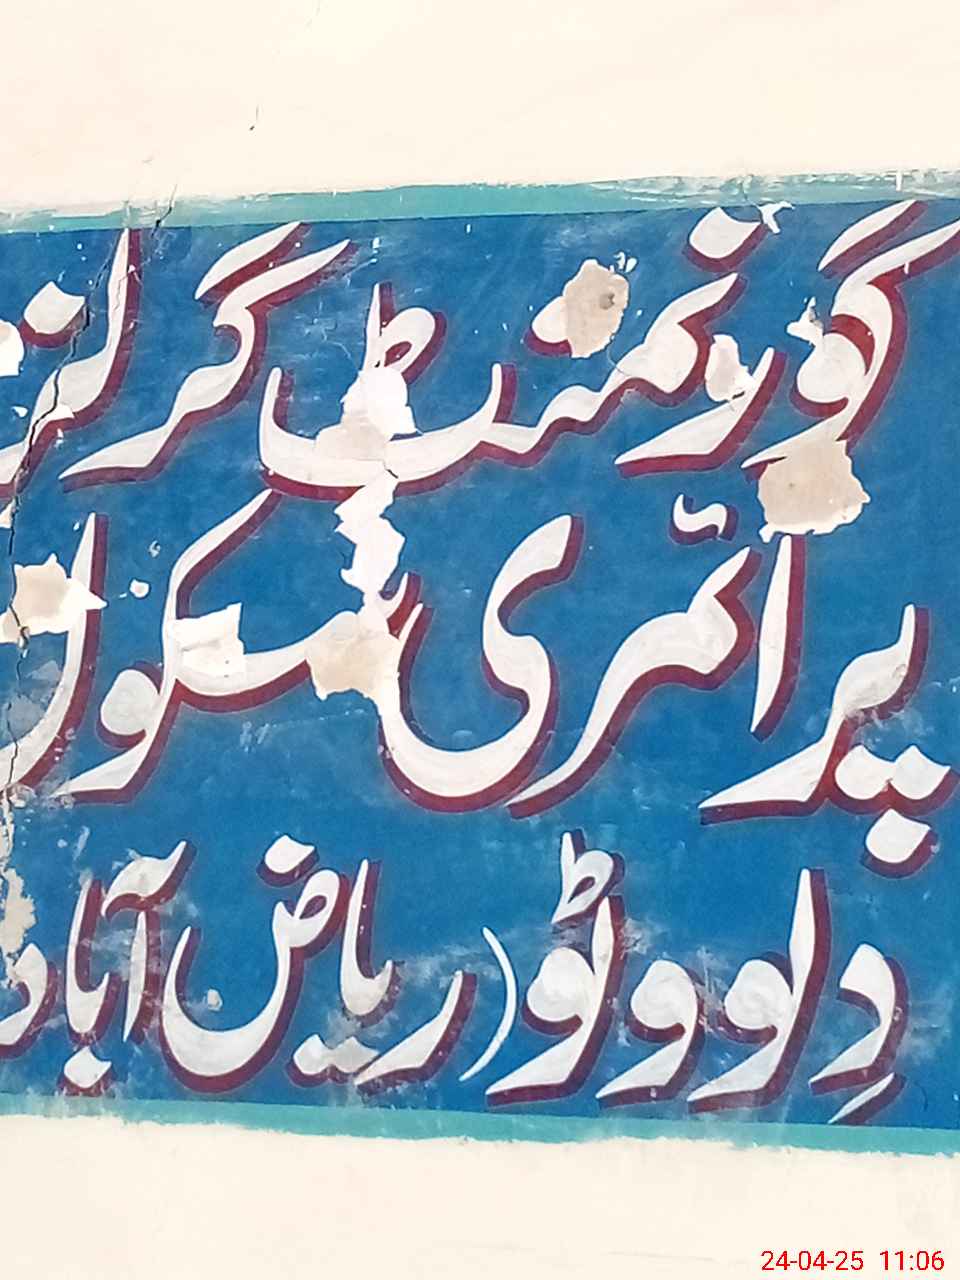 گورنمنٹ گرلز
پرائمری سکول
دِلو وٹو (ریاض آباد
24-04-25 11:06